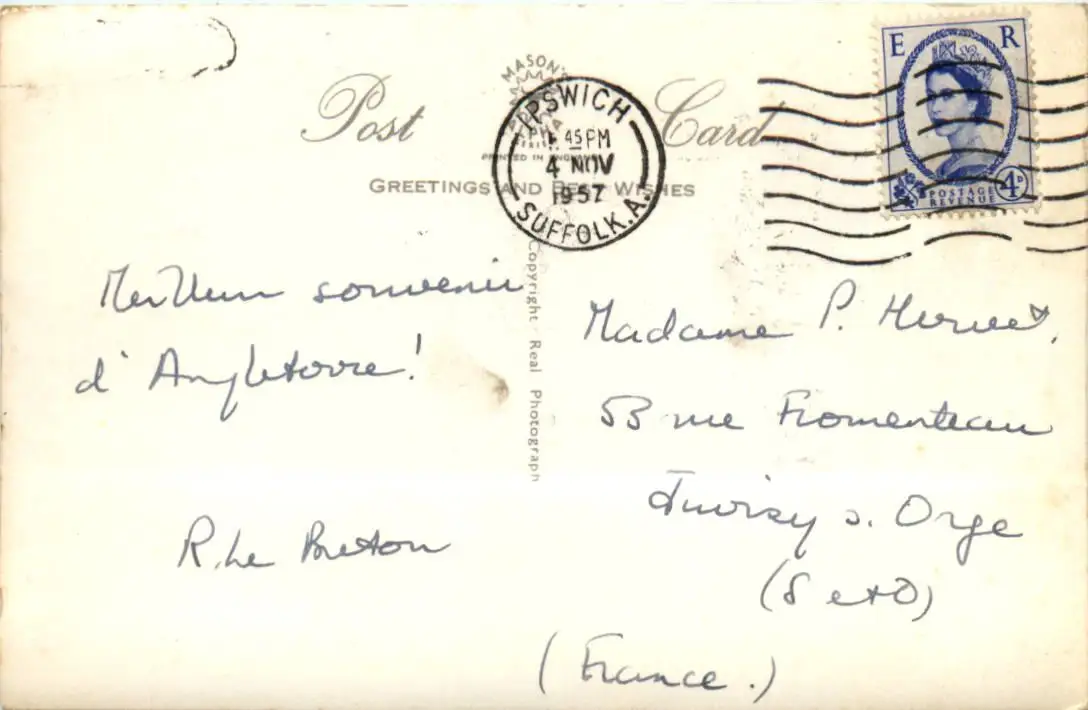 Post Card
MASON'S
PRINTED IN ENGLAND
GREETINGS AND BEST WISHES
IPSWICH
45 PM
4 NOV
1957
SUFFOLK. A.
E R
POSTAGE
REVENUE
4D
Copyright Real Photograph
Meilleur souvenir
d'Angleterre!
R. Le Breton
Madame P. Hervet,
53 rue Fromenteau
Juvisy s. Orge
(S et O)
(France.)